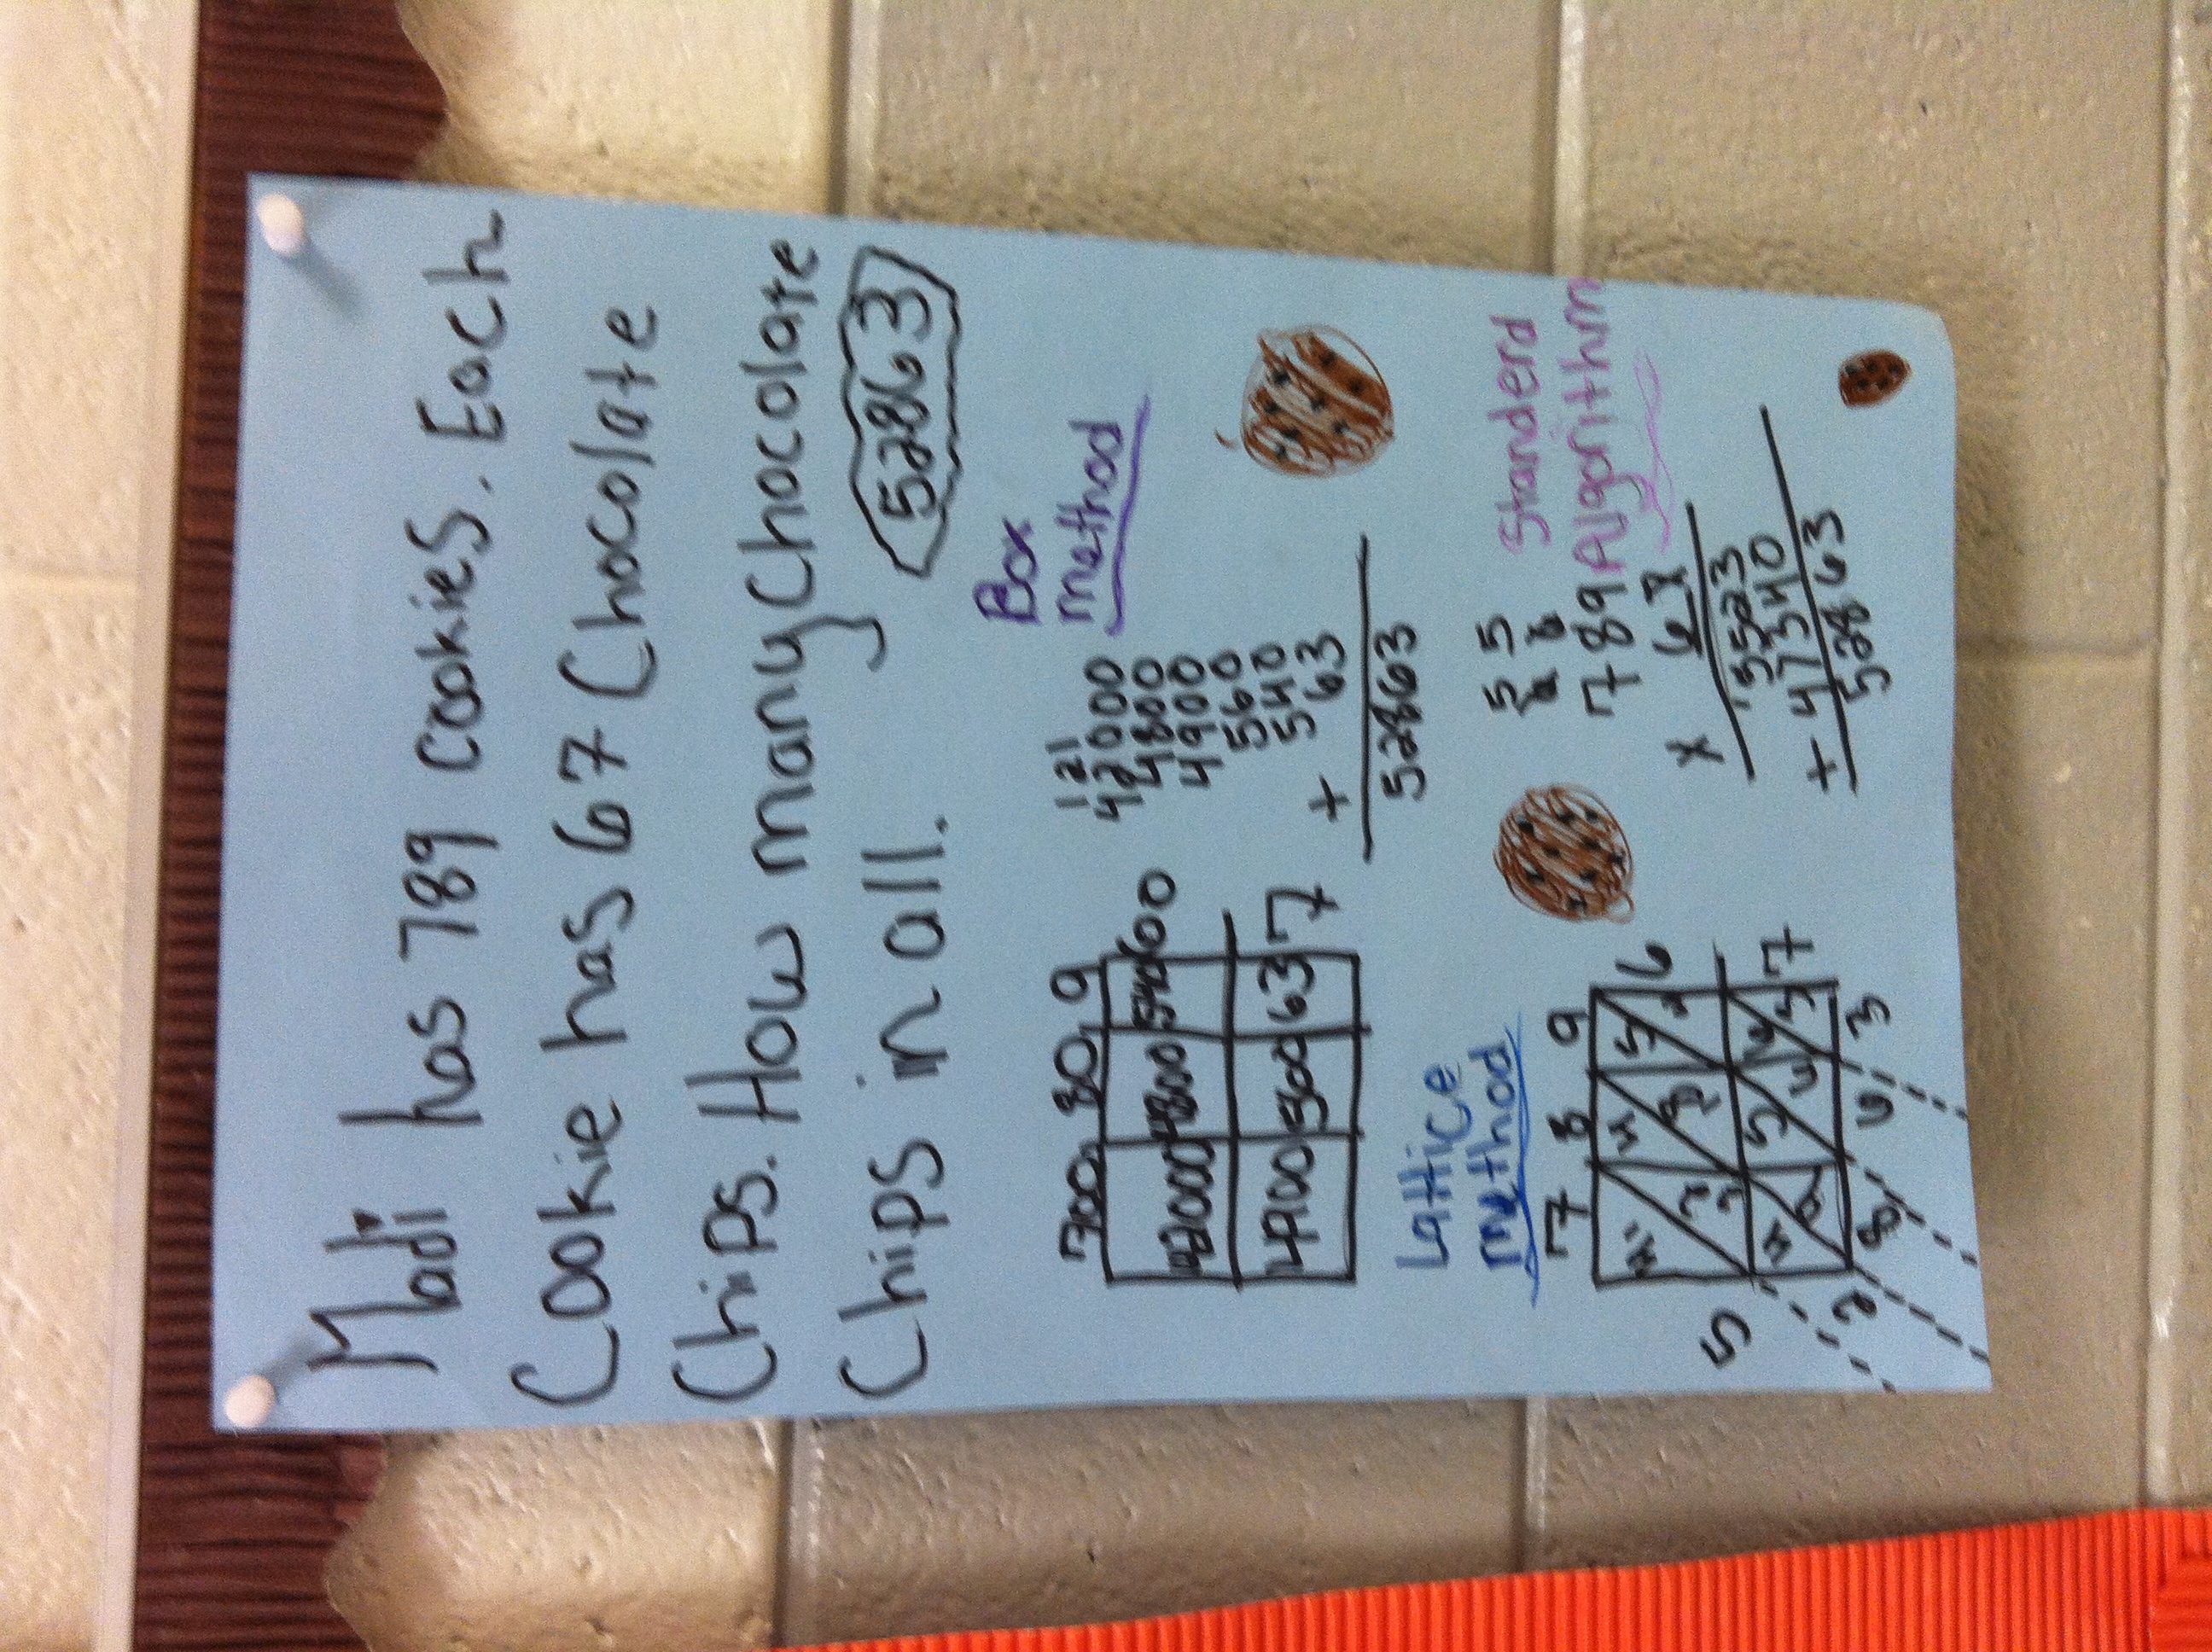 Madi has 789 cookies. Each
Cookie has 67 Chocolate
Chips. How many Chocolate
Chips in all.
52863
Box
method
700 80 9
42000 4800 540 600
4900 560 63 7
121
42000
4800
4900
560
540
+ 63
52863
Lattice
method
7 8 9
6
7
5
2
8
6
3
Standerd
Algorithm
5 5
6 6
789
x 67
5523
+ 47340
52863